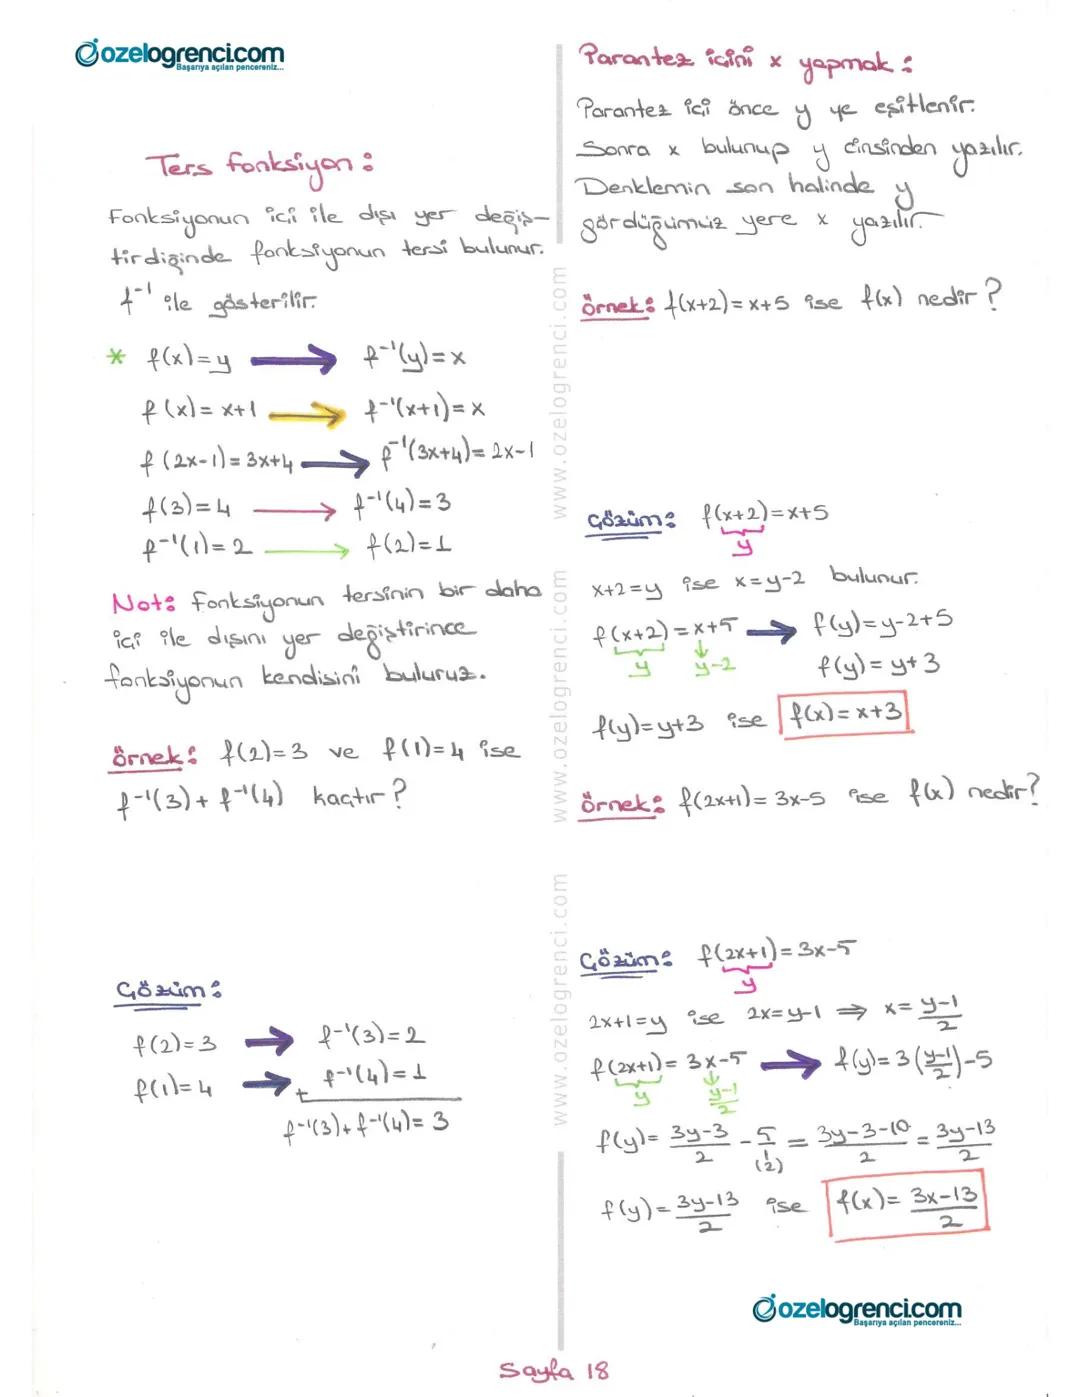 ozelogrenci.com
Başarıya açılan pencereniz...
Ters fonksiyon:
Fonksiyonun içi ile dışı yer değiş-
tirdiğinde fonksiyonun tersi bulunur.
f⁻¹ ile gösterilir.
* f(x)=y → f⁻¹(y)=x
f(x)=x+1 → f⁻¹(x+1)=x
f(2x-1)=3x+4 → f⁻¹(3x+4)=2x-1
f(3)=4 → f⁻¹(4)=3
f⁻¹(1)=2 → f(2)=1
Not: Fonksiyonun tersinin bir daha
içi ile dışını yer değiştirince
fonksiyonun kendisini buluruz.
örnek: f(2)=3 ve f(1)=4 ise
f⁻¹(3)+f⁻¹(4) kaçtır?
Çözüm:
f(2)=3 → f⁻¹(3)=2
f(1)=4 → + f⁻¹(4)=1
f⁻¹(3)+f⁻¹(4)=3
www.ozelogrenci.com
www.ozelogrenci.com
www.ozelogrenci.com
Parantez içini x yapmak:
Parantez içi önce y ye eşitlenir.
Sonra x bulunup y cinsinden yazılır.
Denklemin son halinde y
gördüğümüz yere x yazılır.
örnek: f(x+2)=x+5 ise f(x) nedir?
Çözüm: f(x+2)=x+5
y
x+2=y ise x=y-2 bulunur.
f(x+2)=x+5 → f(y)=y-2+5
y y-2 f(y)=y+3
f(y)=y+3 ise f(x)=x+3
örnek: f(2x+1)=3x-5 ise f(x) nedir?
Çözüm: f(2x+1)=3x-5
y
2x+1=y ise 2x=y-1 ⇒ x=(y-1)/2
f(2x+1)=3x-5 → f(y)=3((y-1)/2)-5
y (y-1)/2
f(y)=(3y-3)/2 - 5/1 = (3y-3-10)/2 = (3y-13)/2
(2)
f(y)=(3y-13)/2 ise f(x)=(3x-13)/2
ozelogrenci.com
Başarıya açılan pencereniz...
Sayfa 18